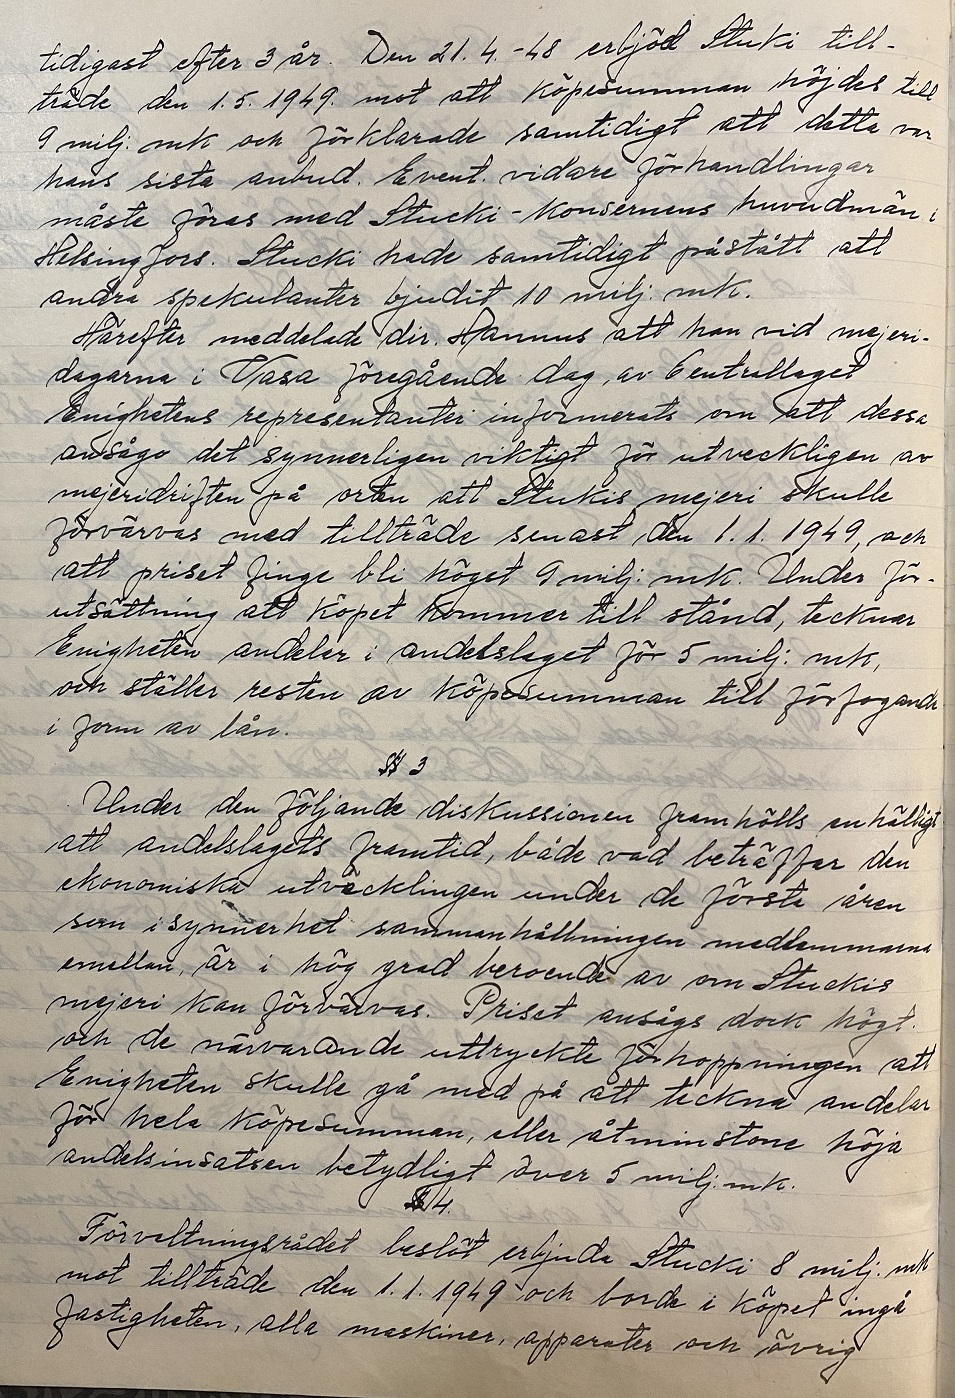 tidigast efter 3 år. Den 21.4.-48 erbjöd Stuki till-
träde den 1.5.1949. mot att köpesumman höjdes till
9 milj. mk och förklarade samtidigt att detta var
hans sista anbud. Event. vidare förhandlingar
måste föras med Stucki-konsernens huvudmän i
Helsingfors. Stucki hade samtidigt påstått att
andra spekulanter bjudit 10 milj. mk.
Härefter meddelade dir. Hannus att han vid mejeri-
dagarna i Vasa föregående dag, av Centrallaget
Enighetens representanter informerats om att dessa
ansågo det synnerligen viktigt för utveckligen av
mejeridriften på orten att Stukis mejeri skulle
förvärvas med tillträde senast den 1.1.1949, och
att priset finge bli högst 9 milj. mk. Under för-
utsättning att köpet kommer till stånd, tecknar
Enigheten andelar i andelslaget för 5 milj. mk,
och ställer resten av köpesumman till förfogande
i form av lån.
§ 3
Under den följande diskussionen framhölls enhälligt
att andelslagets framtid, både vad beträffar den
ekonomiska utvecklingen under de första åren
som i synnerhet sammanhållningen medlemmarna
emellan, är i hög grad beroende av om Stuckis
mejeri kan förvärvas. Priset ansågs dock högt.
och de närvarande uttryckte förhoppningen att
Enigheten skulle gå med på att teckna andelar
för hela köpesumman, eller åtminstone höja
andelsinsatsen betydligt över 5 milj. mk.
§ 4.
Förvaltningsrådet beslöt erbjuda Stucki 8 milj. mk
mot tillträde den 1.1.1949 och borde i köpet ingå
fastigheten, alla maskiner, apparater och övrig